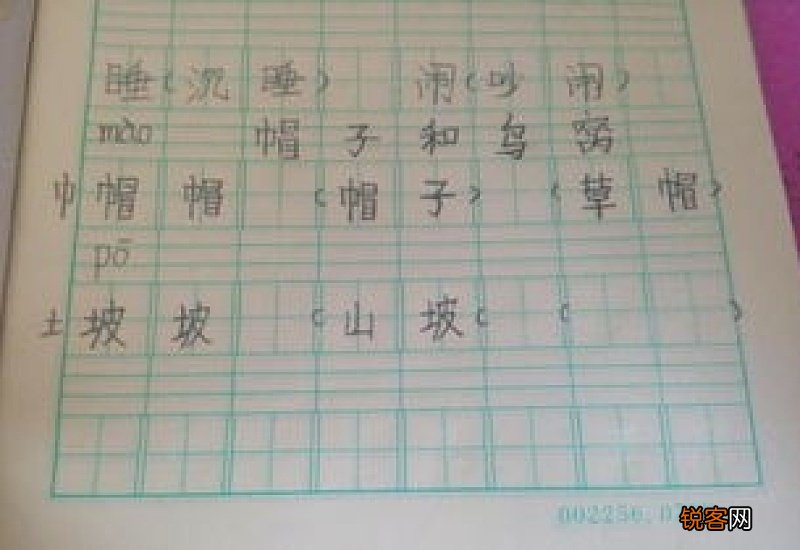 睡(沉睡) 闹(吵闹)
mào 帽子和鸟窝
巾 帽 帽 (帽子) (草帽)
pō
土 坡 坡 (山坡( ( )
002256.0
锐客网